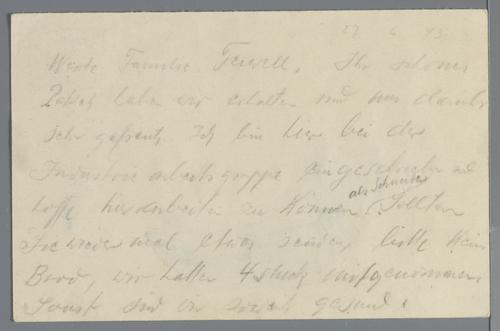 27 6 43.
Werte Familie Terwell. Ihr schönes
haben wir erhalten und uns darüber
sehr gefreut. Ich bin hier bei der
Industrie arbeitsgruppe eingeschrieben und
hoffe hier arbeiten zu können als Schneider. Sollten
Sie wieder mal etwas senden, bitte kein
Brod, wir hatten 4 stück mitgenommen
Sonst sind wir gesund.